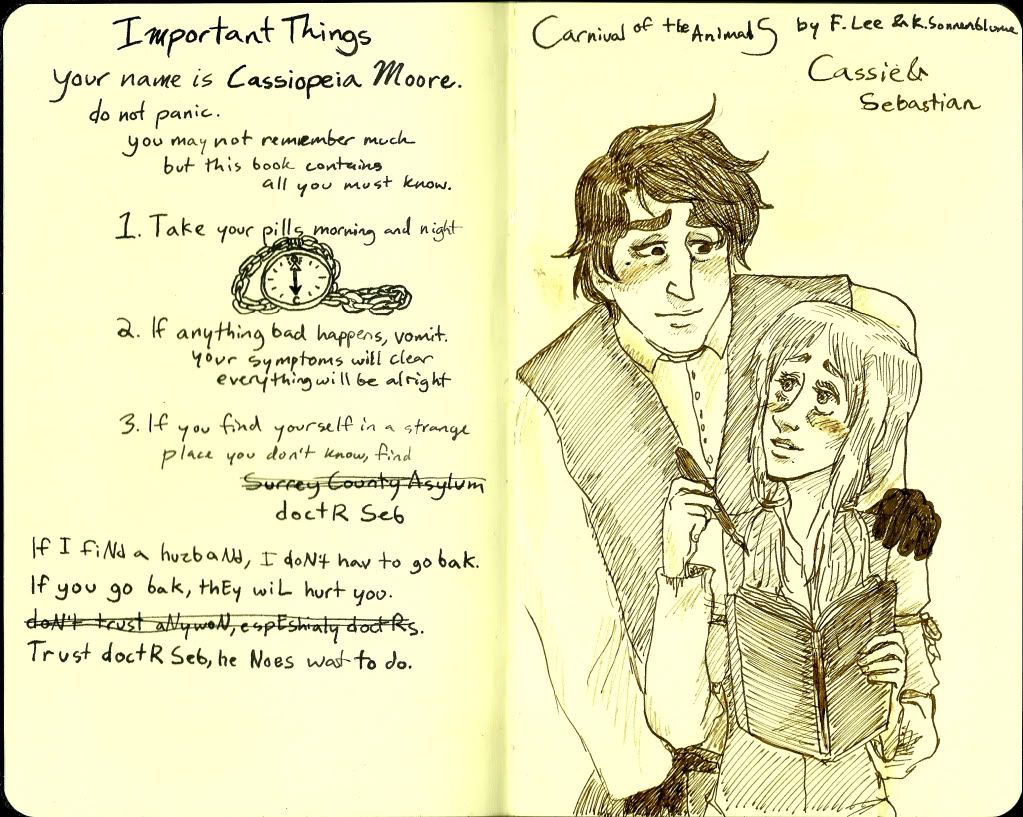 Important Things
Your name is Cassiopeia Moore.
do not panic.
you may not remember much
but this book contains
all you must know.
1. Take your pills morning and night
2. If anything bad happens, vomit.
your symptoms will clear
everything will be alright
3. If you find yourself in a strange
place you don't know, find
Surrey County Asylum
doctR Seb
If I fiNd a huzbaNd, I doN't hav to go bak.
If you go bak, thEy wiL hurt you.
doN't trust aNywoN, espEshialy doctRs.
Trust doctR Seb, he Noes wat to do.
Carnival of the AnimalS by F. Lee & K. Sonnenblume
Cassie &
Sebastian